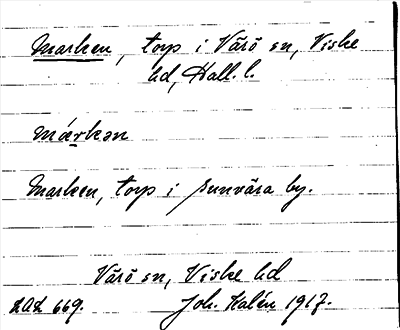 Marken, torp i Värö sn, Viske
hd, Hall. l.
márkən
Marken, torp i Sunvära by.
Värö sn, Viske hd
LAL 669. Joh. Kalén 1917.